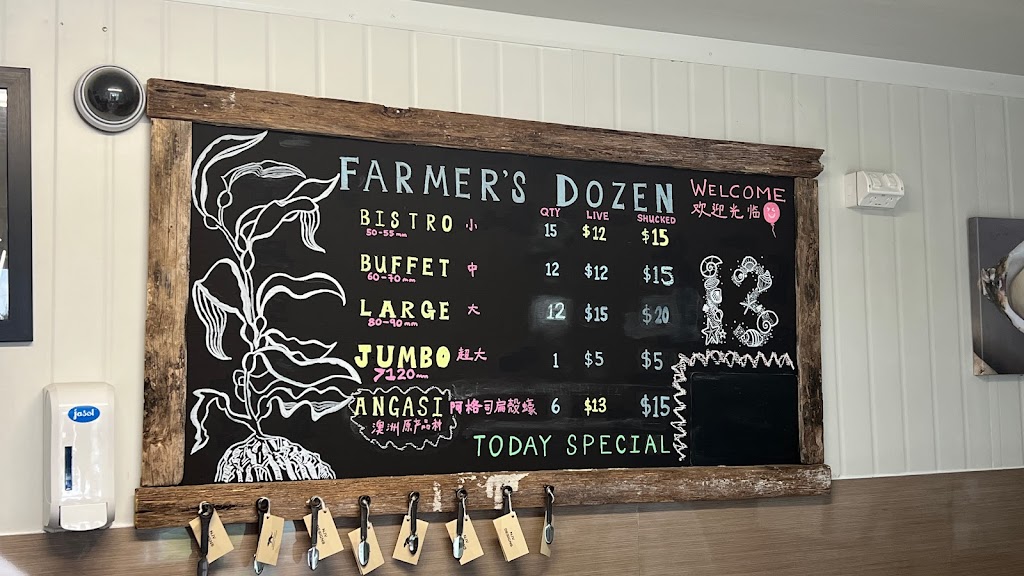 FARMER'S DOZEN
WELCOME
欢迎光临
QTY LIVE SHUCKED
BISTRO 小 15 $12 $15
50-55mm
BUFFET 中 12 $12 $15
60-70mm
LARGE 大 12 $15 $20
80-90mm
13
JUMBO 超大 1 $5 $5
>120mm
ANGASI 阿格司扁殼蠔 6 $13 $15
澳洲原产品种
TODAY SPECIAL
jasol